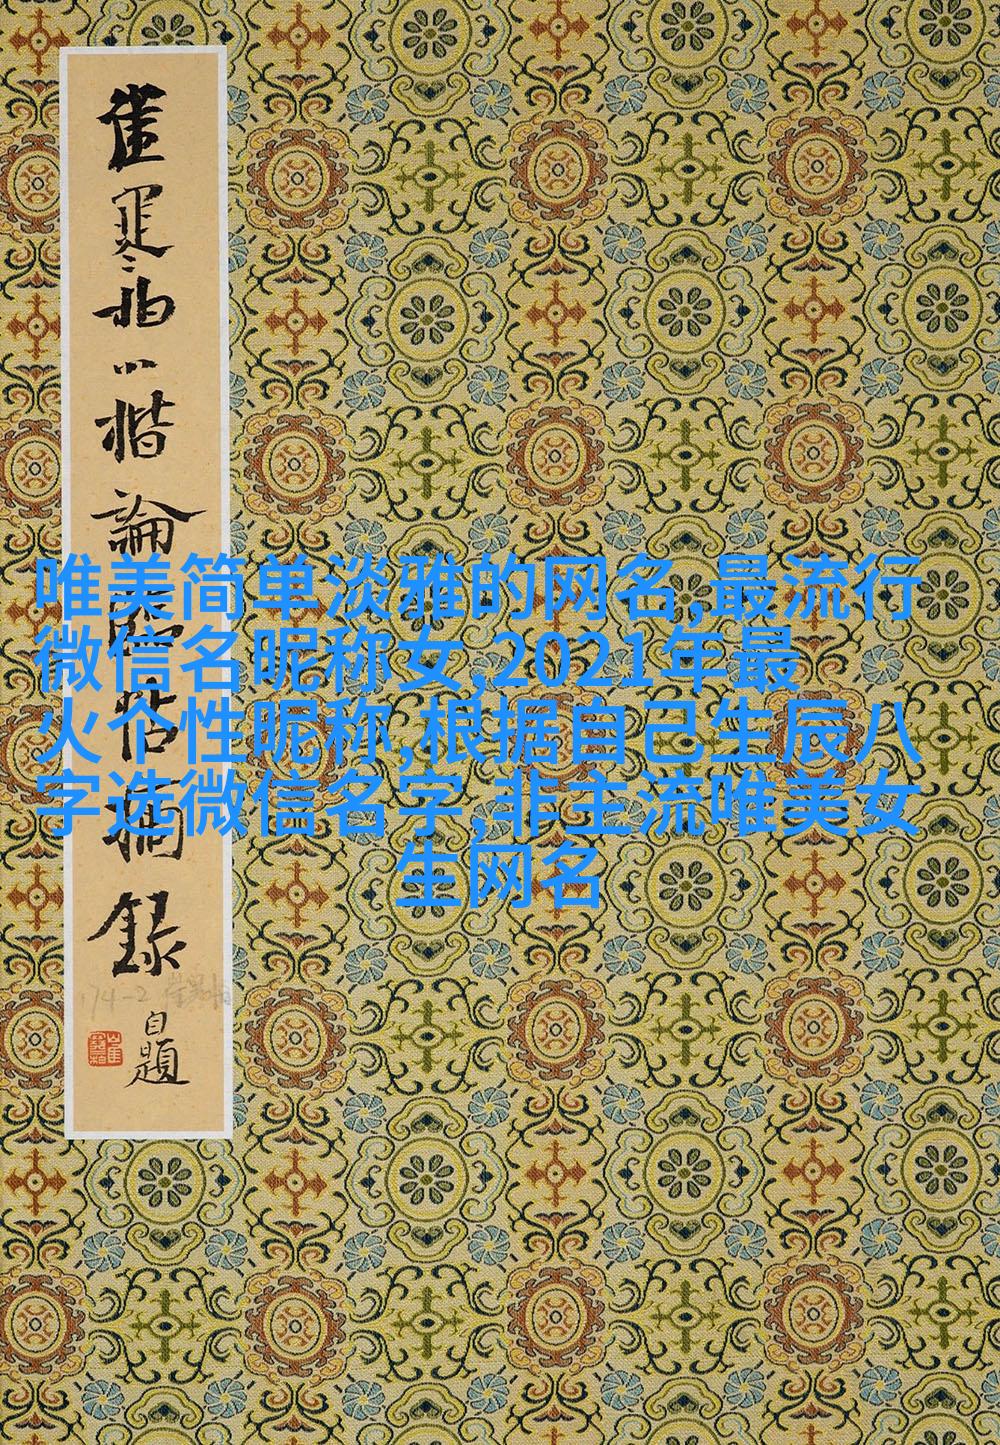 崔寔柏小楷論書書信摘錄
自題
唯美简单淡雅的网名,最流行
微信名昵称女,2021年最
火个性昵称,根据自己生辰八
字选微信名字,非主流唯美女
生网名